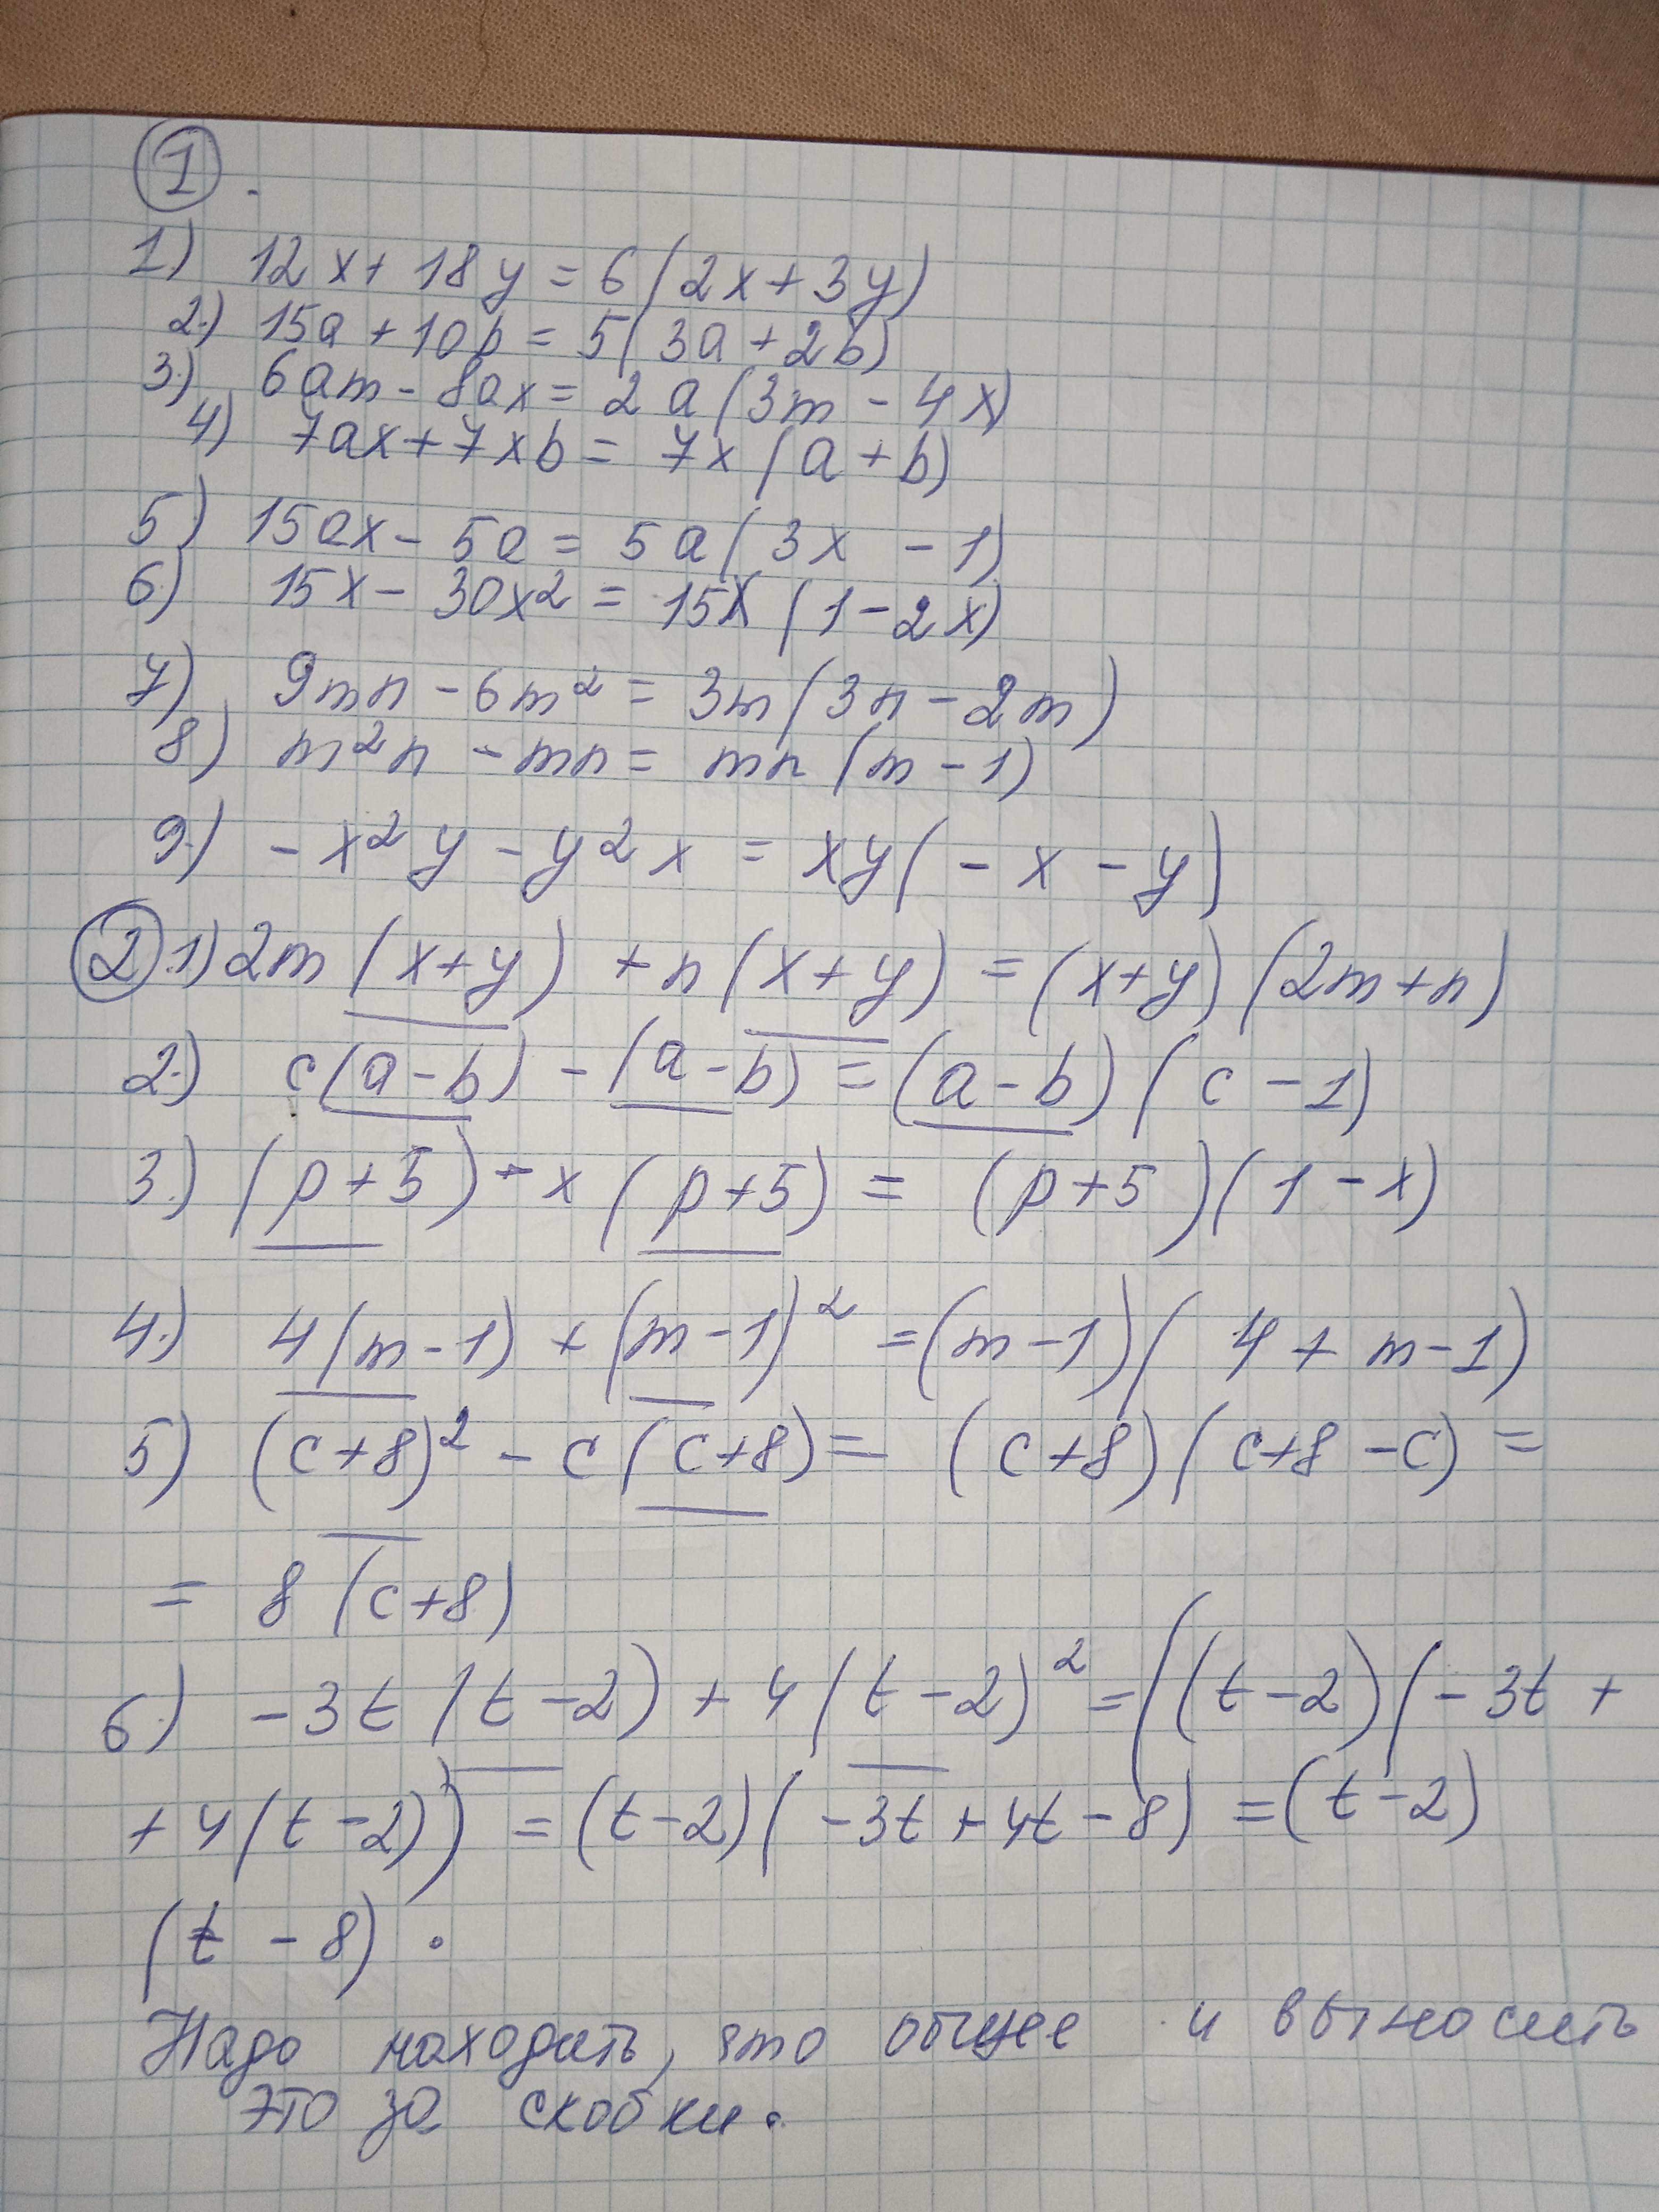 1.
1) 12x + 18y = 6(2x + 3y)
2.) 15a + 10b = 5(3a + 2b)
3.) 6am - 8ax = 2a(3m - 4x)
4) 7ax + 7xb = 7x(a + b)
5) 15ax - 5a = 5a(3x - 1)
6) 15x - 30x² = 15x(1 - 2x)
7) 9mn - 6m² = 3m(3n - 2m)
8) m²n - mn = mn(m - 1)
9.) - x²y - y²x = xy(- x - y)
2.1) 2m(x+y) + n(x+y) = (x+y)(2m+n)
2.) c(a-b) - (a-b) = (a-b)(c-1)
3.) (p+5) - x(p+5) = (p+5)(1-x)
4.) 4(m-1) + (m-1)² = (m-1)(4+m-1)
5) (c+8)² - c(c+8) = (c+8)(c+8-c) =
= 8(c+8)
6.) -3t(t-2) + 4(t-2)² = ((t-2)(-3t +
+ 4(t-2)) = (t-2)(-3t+4t-8) = (t-2)
(t - 8).
Надо находить, что общее и выносить
это за скобки.